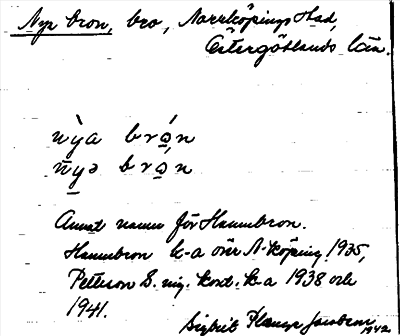 Nya bron, bro, Norrköpings stad,
Östergötlands län.
nỳa bró̱n
n̄yə bró̱n
Annat namn för Hamnbron.
Hamnbron k-a över N-köping 1935,
Petterson S. mg. kont. k-a 1938 och
1941.
Sigbrit Plænge Jacobson 1942